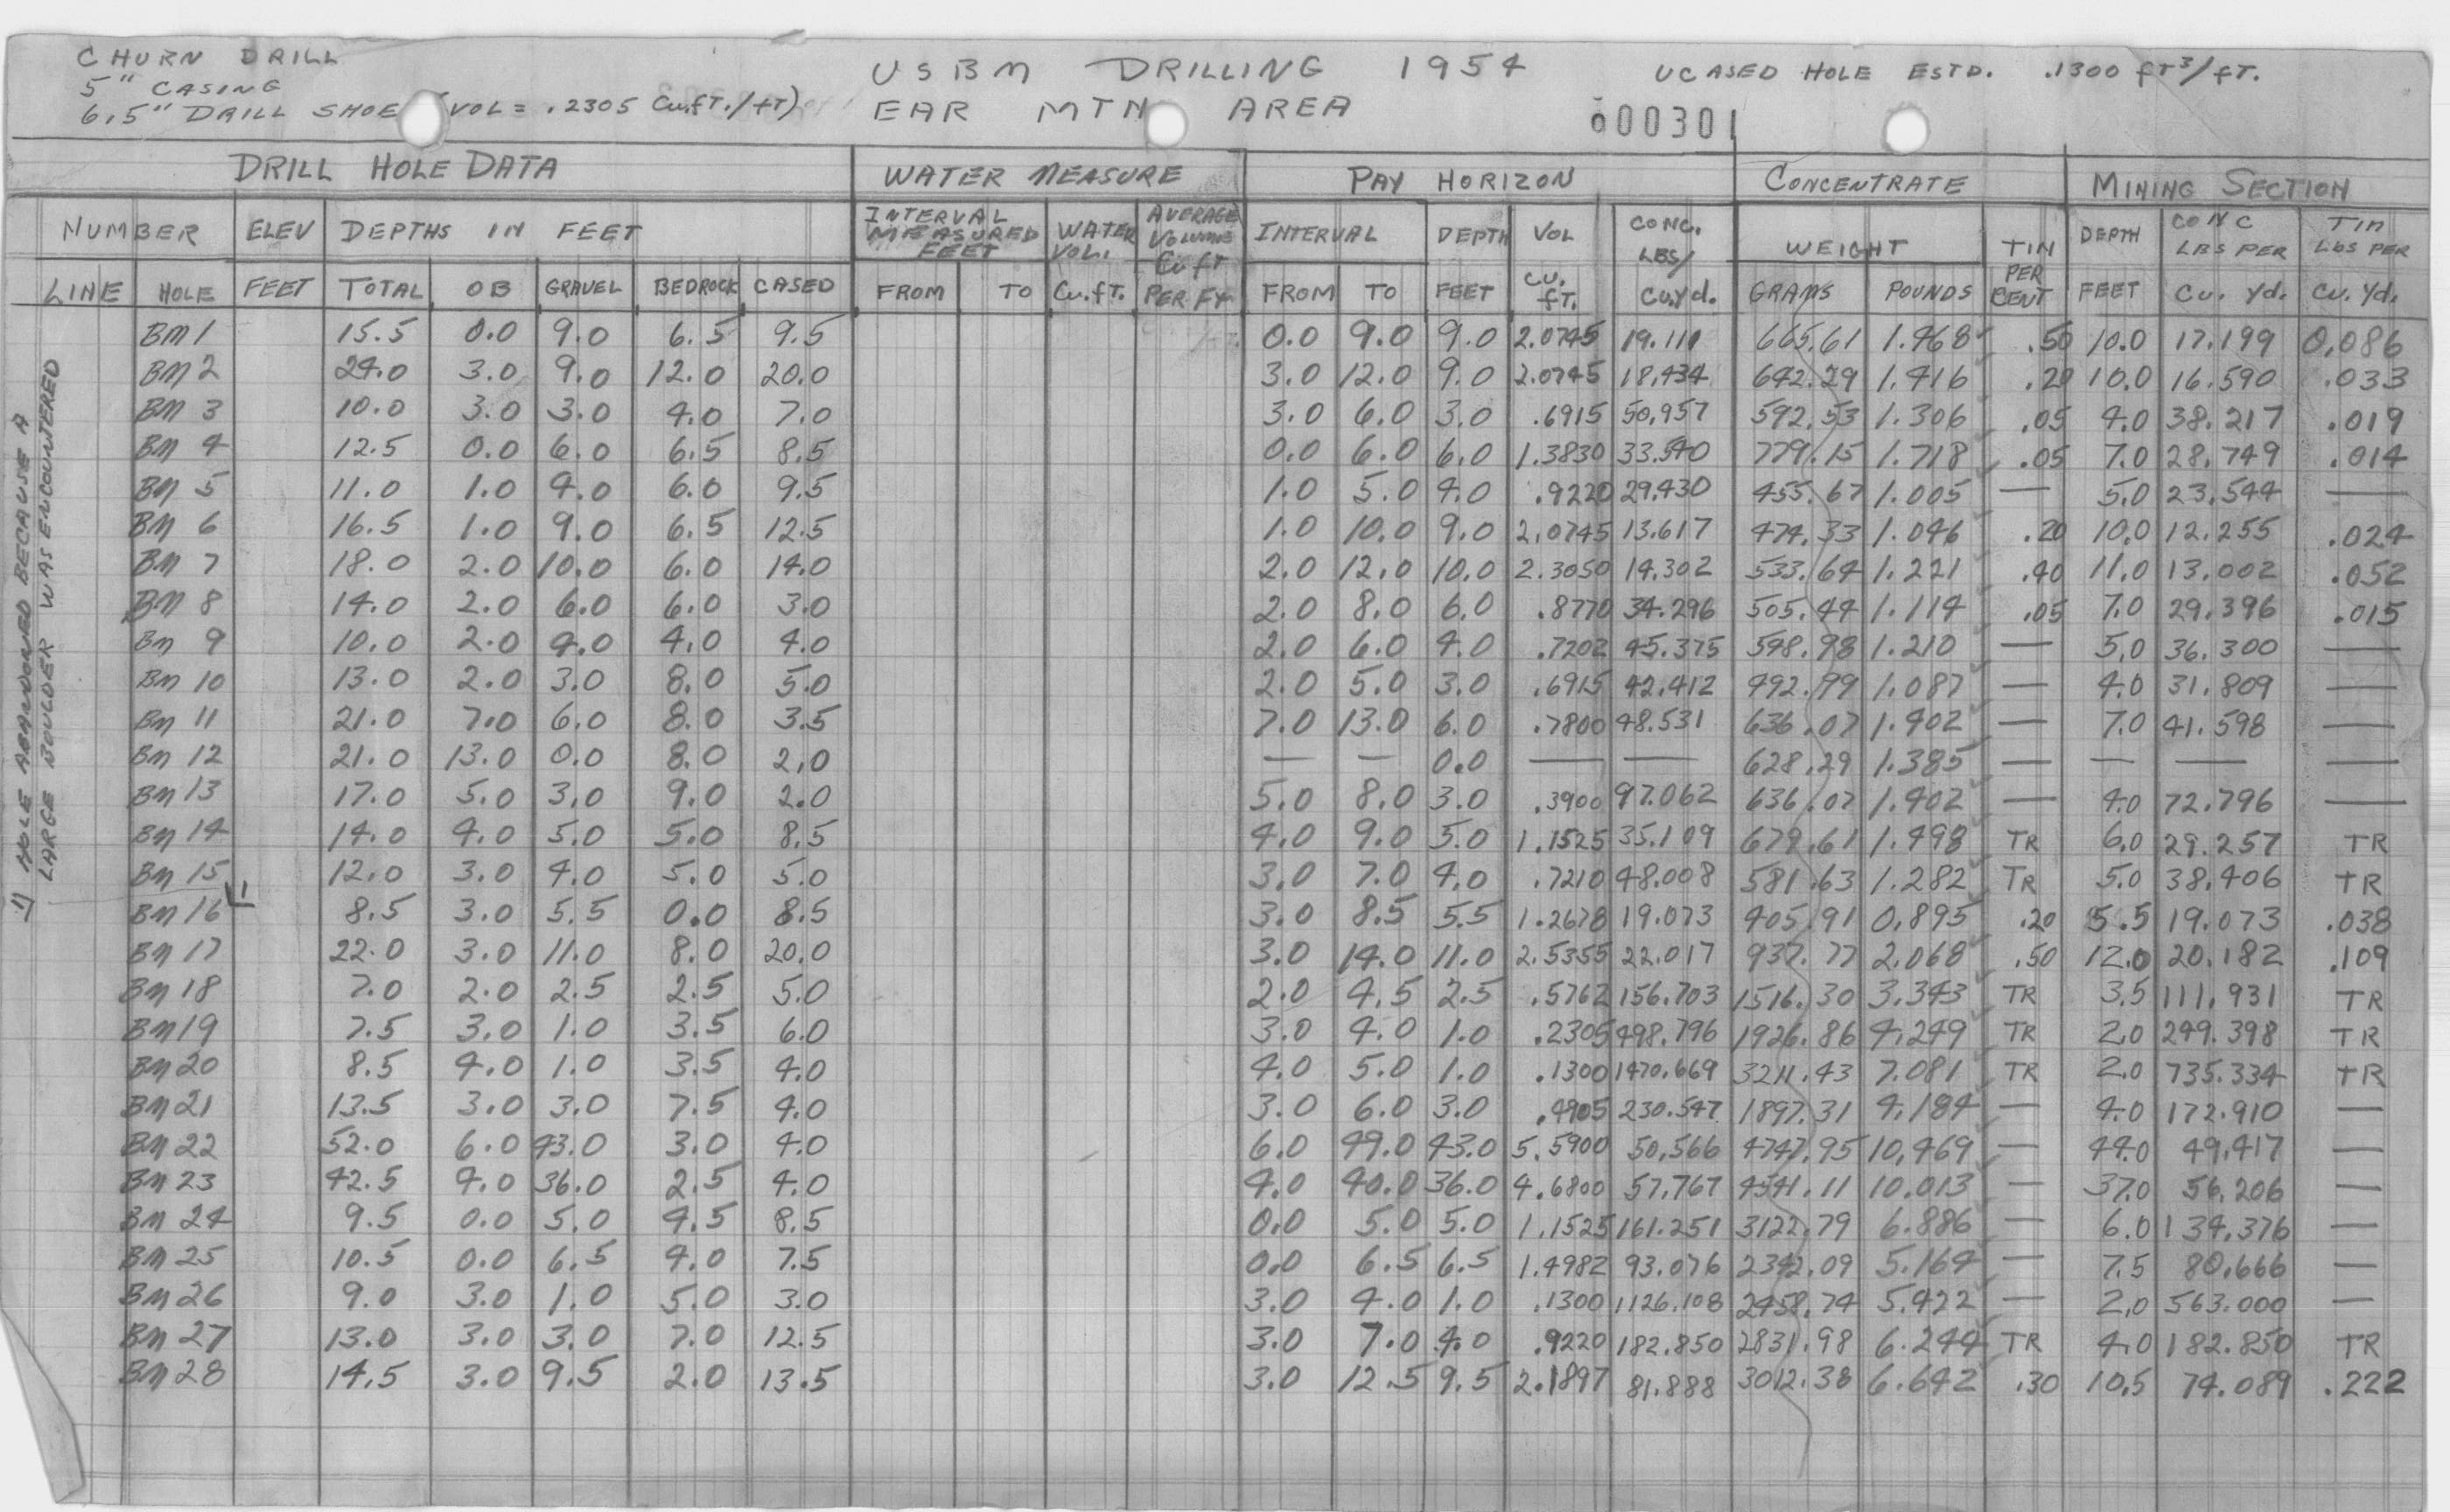 CHURN DRILL
5" CASING
6.5" DRILL SHOE (VOL = .2305 Cu.fT./fT)
USBM DRILLING 1954
EAR MTN AREA
UCASED HOLE ESTD. .1300 fT³/fT.
000301
DRILL HOLE DATA WATER MEASURE PAY HORIZON CONCENTRATE MINING SECTION
NUMBER ELEV DEPTHS IN FEET INTERVAL MEASURED FEET WATER VOL. AVERAGE VOLUME Cu fT PER FT INTERVAL DEPTH VOL CONC. LBS/ WEIGHT TIN PER CENT DEPTH CONC LBS PER TIN LBS PER
LINE HOLE FEET TOTAL OB GRAVEL BEDROCK CASED FROM TO Cu.fT. FROM TO FEET CU. FT. Cu.Yd. GRAMS POUNDS FEET Cu. Yd. Cu. Yd.
BM 1 15.5 0.0 9.0 6.5 9.5 0.0 9.0 9.0 2.0745 19.111 665.61 1.468 .50 10.0 17.199 0.086
BM 2 24.0 3.0 9.0 12.0 20.0 3.0 12.0 9.0 2.0745 18.434 642.29 1.416 .20 10.0 16.590 .033
BM 3 10.0 3.0 3.0 4.0 7.0 3.0 6.0 3.0 .6915 50.957 592.53 1.306 .05 4.0 38.217 .019
BM 4 12.5 0.0 6.0 6.5 8.5 0.0 6.0 6.0 1.3830 33.540 779.15 1.718 .05 7.0 28.749 .014
BM 5 11.0 1.0 4.0 6.0 9.5 1.0 5.0 4.0 .9220 29.430 455.67 1.005 — 5.0 23.544 —
BM 6 16.5 1.0 9.0 6.5 12.5 1.0 10.0 9.0 2.0745 13.617 474.33 1.046 .20 10.0 12.255 .024
BM 7 18.0 2.0 10.0 6.0 14.0 2.0 12.0 10.0 2.3050 14.302 533.64 1.221 .40 11.0 13.002 .052
BM 8 14.0 2.0 6.0 6.0 3.0 2.0 8.0 6.0 .8770 34.296 505.44 1.114 .05 7.0 29.396 .015
BM 9 10.0 2.0 4.0 4.0 4.0 2.0 6.0 4.0 .7202 45.375 548.98 1.210 — 5.0 36.300 —
BM 10 13.0 2.0 3.0 8.0 5.0 2.0 5.0 3.0 .6915 42.412 492.99 1.087 — 4.0 31.809 —
BM 11 21.0 7.0 6.0 8.0 3.5 7.0 13.0 6.0 .7800 48.531 636.07 1.402 — 7.0 41.598 —
BM 12 21.0 13.0 0.0 8.0 2.0 — — 0.0 — — 628.29 1.385 — — — —
BM 13 17.0 5.0 3.0 9.0 2.0 5.0 8.0 3.0 .3900 97.062 636.07 1.402 — 4.0 72.796 —
BM 14 14.0 4.0 5.0 5.0 8.5 4.0 9.0 5.0 1.1525 35.109 679.61 1.498 TR 6.0 29.257 TR
BM 15 12.0 3.0 4.0 5.0 5.0 3.0 7.0 4.0 .7210 48.008 581.63 1.282 TR 5.0 38.406 TR
BM 16 1) 8.5 3.0 5.5 0.0 8.5 3.0 8.5 5.5 1.2678 19.073 405.91 0.895 .20 5.5 19.073 .038
BM 17 22.0 3.0 11.0 8.0 20.0 3.0 14.0 11.0 2.5355 22.017 937.77 2.068 .50 12.0 20.182 .109
BM 18 7.0 2.0 2.5 2.5 5.0 2.0 4.5 2.5 .5762 156.703 1516.30 3.343 TR 3.5 111.931 TR
BM 19 7.5 3.0 1.0 3.5 6.0 3.0 4.0 1.0 .2305 498.796 1926.86 4.249 TR 2.0 249.398 TR
BM 20 8.5 4.0 1.0 3.5 4.0 4.0 5.0 1.0 .1300 1470.669 3211.43 7.081 TR 2.0 735.334 TR
BM 21 13.5 3.0 3.0 7.5 4.0 3.0 6.0 3.0 .4905 230.547 1897.31 4.184 — 4.0 172.910 —
BM 22 52.0 6.0 43.0 3.0 4.0 6.0 49.0 43.0 5.5900 50.566 4747.95 10.469 — 44.0 49.417 —
BM 23 42.5 4.0 36.0 2.5 4.0 4.0 40.0 36.0 4.6800 57.767 4541.11 10.013 — 37.0 56.206 —
BM 24 9.5 0.0 5.0 4.5 8.5 0.0 5.0 5.0 1.1525 161.251 3122.79 6.886 — 6.0 134.376 —
BM 25 10.5 0.0 6.5 4.0 7.5 0.0 6.5 6.5 1.4982 93.076 2342.09 5.164 — 7.5 80.666 —
BM 26 9.0 3.0 1.0 5.0 3.0 3.0 4.0 1.0 .1300 1126.108 2458.74 5.422 — 2.0 563.000 —
BM 27 13.0 3.0 3.0 7.0 12.5 3.0 7.0 4.0 .9220 182.850 2831.98 6.244 TR 4.0 182.850 TR
BM 28 14.5 3.0 9.5 2.0 13.5 3.0 12.5 9.5 2.1897 81.888 3012.38 6.642 .30 10.5 74.089 .222
1) HOLE ABANDONED BECAUSE A
LARGE BOULDER WAS ENCOUNTERED